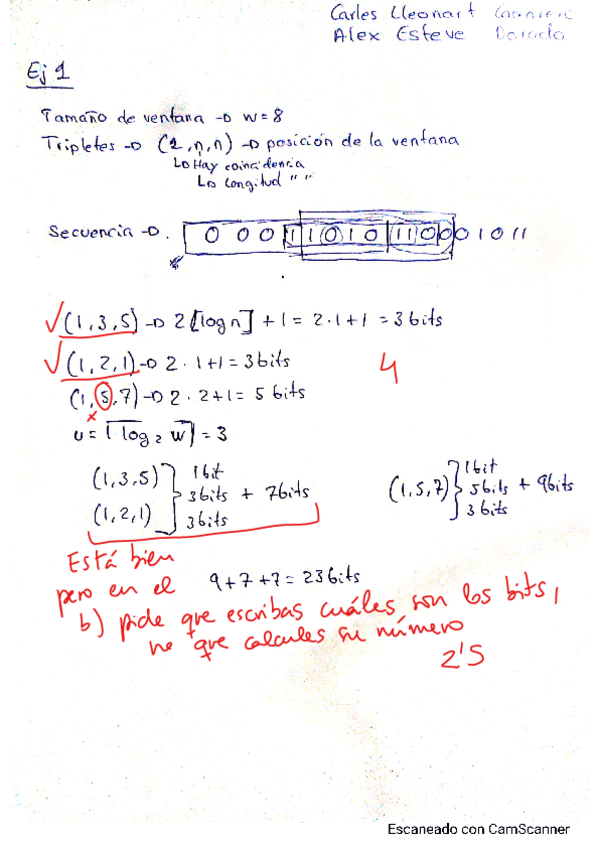 Carles Lleonart
Alex Esteve Dorado
Ej 1
Tamaño de ventana → w = 8
Tripletes → (1, n, n) → posición de la ventana
↳ Hay coincidencia
↳ Longitud " "
Secuencia → . 0 0 0 1 1 0 1 0 1 1 0 0 0 1 0 1 1
(1, 3, 5) → 2 ⌈log n⌉ + 1 = 2·1+1 = 3 bits
(1, 2, 1) → 2 · 1+1 = 3 bits
4
(1, 5, 7) → 2 · 2+1 = 5 bits
x
u = ⌈log₂ w⌉ = 3
(1,3,5)
(1,2,1)
1 bit
3 bits + 7 bits
3 bits
(1,5,7)
1 bit
5 bits + 9 bits
3 bits
Está bien
pero en el
9+7+7 = 23 bits
b) pide que escribas cuáles son los bits,
no que calcules su número
2'5
Escaneado con CamScanner